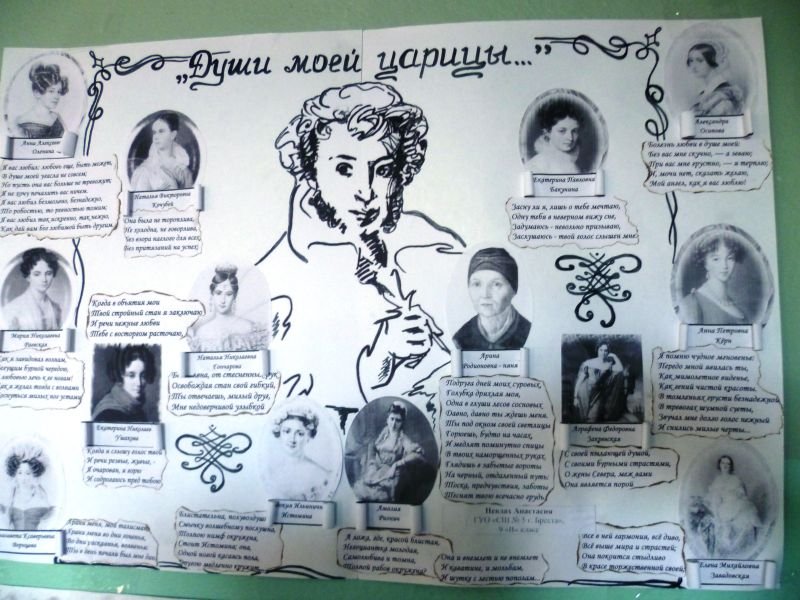 „Души моей царицы...”
Анна Алексеев
Оленина
Я вас любил: любовь еще, быть может,
В душе моей угасла не совсем;
Но пусть она вас больше не тревожит;
Я не хочу печалить вас ничем.
Я вас любил безмолвно, безнадежно,
То робостью, то ревностью томим;
Я вас любил так искренно, так нежно,
Как дай вам бог любимой быть другим.
Наталья Викторовна
Кочубей
Она была не тороплива,
Не холодна, не говорлива,
Без взора наглого для всех,
Без притязаний на успех
Екатерина Павловна
Бакунина
Засну ли я, лишь о тебе мечтаю,
Одну тебя в неверном вижу сне,
Задумаюсь - невольно призываю,
Заслушаюсь - твой голос слышен мне.
Александра
Осипова
Болезнь любви в душе моей:
Без вас мне скучно, — я зеваю;
При вас мне грустно, — я терплю;
И, мочи нет, сказать желаю,
Мой ангел, как я вас люблю!
Мария Николаевна
Раевская
Как я завидовал волнам,
бегущим бурной чередою,
любовью лечь к ее ногам!
Как я желал тогда с волнами
коснуться милых ног устами
Когда в объятия мои
Твой стройный стан я заключаю
И речи нежные любви
Тебе с восторгом расточаю,
Наталья Николаевна
Гончарова
от стесненных рук
Освобождая стан свой гибкий,
Ты отвечаешь, милый друг,
Мне недоверчивой улыбкой
Екатерина Николаев
Ушакова
Когда я слышу голос твой
И речи резвые, живые, -
Я очарован, я горю
И содрогаюсь пред тобою
Арина
Родионовна - няня
Подруга дней моих суровых,
Голубка дряхлая моя,
Одна в глуши лесов сосновых
Давно, давно ты ждешь меня.
Ты под окном своей светлицы
Горюешь, будто на часах,
И медлят поминутно спицы
В твоих наморщенных руках.
Глядишь в забытые вороты
На черный, отдаленный путь:
Тоска, предчувствия, заботы
Теснят твою всечасно грудь.
Аграфена Федоровна
Закревская
С своей пылающей душой,
С своими бурными страстями,
О жены Севера, меж вами
Она является порой
Анна Петровна
Керн
Я помню чудное мгновенье:
Передо мной явилась ты,
Как мимолетное виденье,
Как гений чистой красоты.
В томленьях грусти безнадежной
В тревогах шумной суеты,
Звучал мне долго голос нежный
И снились милые черты.
Елизавета Ксаверьевна
Воронцова
Храни меня, мой талисман,
Храни меня во дни гоненья,
Во дни раскаянья, волненья:
Ты в день печали был мне дан.
Ильинична
Истомина
Блистательна, полувоздушна
Смычку волшебному послушна,
Толпою нимф окружена,
Стоит Истомина; она,
Одной ногой касаясь пола,
Другою медленно кружит
Амалия
Ризнич
А ложа, где, красой блистая,
Негоциантка молодая,
Самолюбива и томна,
Толпой рабов окружена?
Она и внемлет и не внемлет
И каватине, и мольбам,
И шутке с лестью пополам...
Анастасия
ГУО «СШ № 5 г. Бреста»,
класса
Елена Михайловна
Завадовская
Всё в ней гармония, всё диво,
Всё выше мира и страстей;
Она покоится стыдливо
В красе торжественной своей;